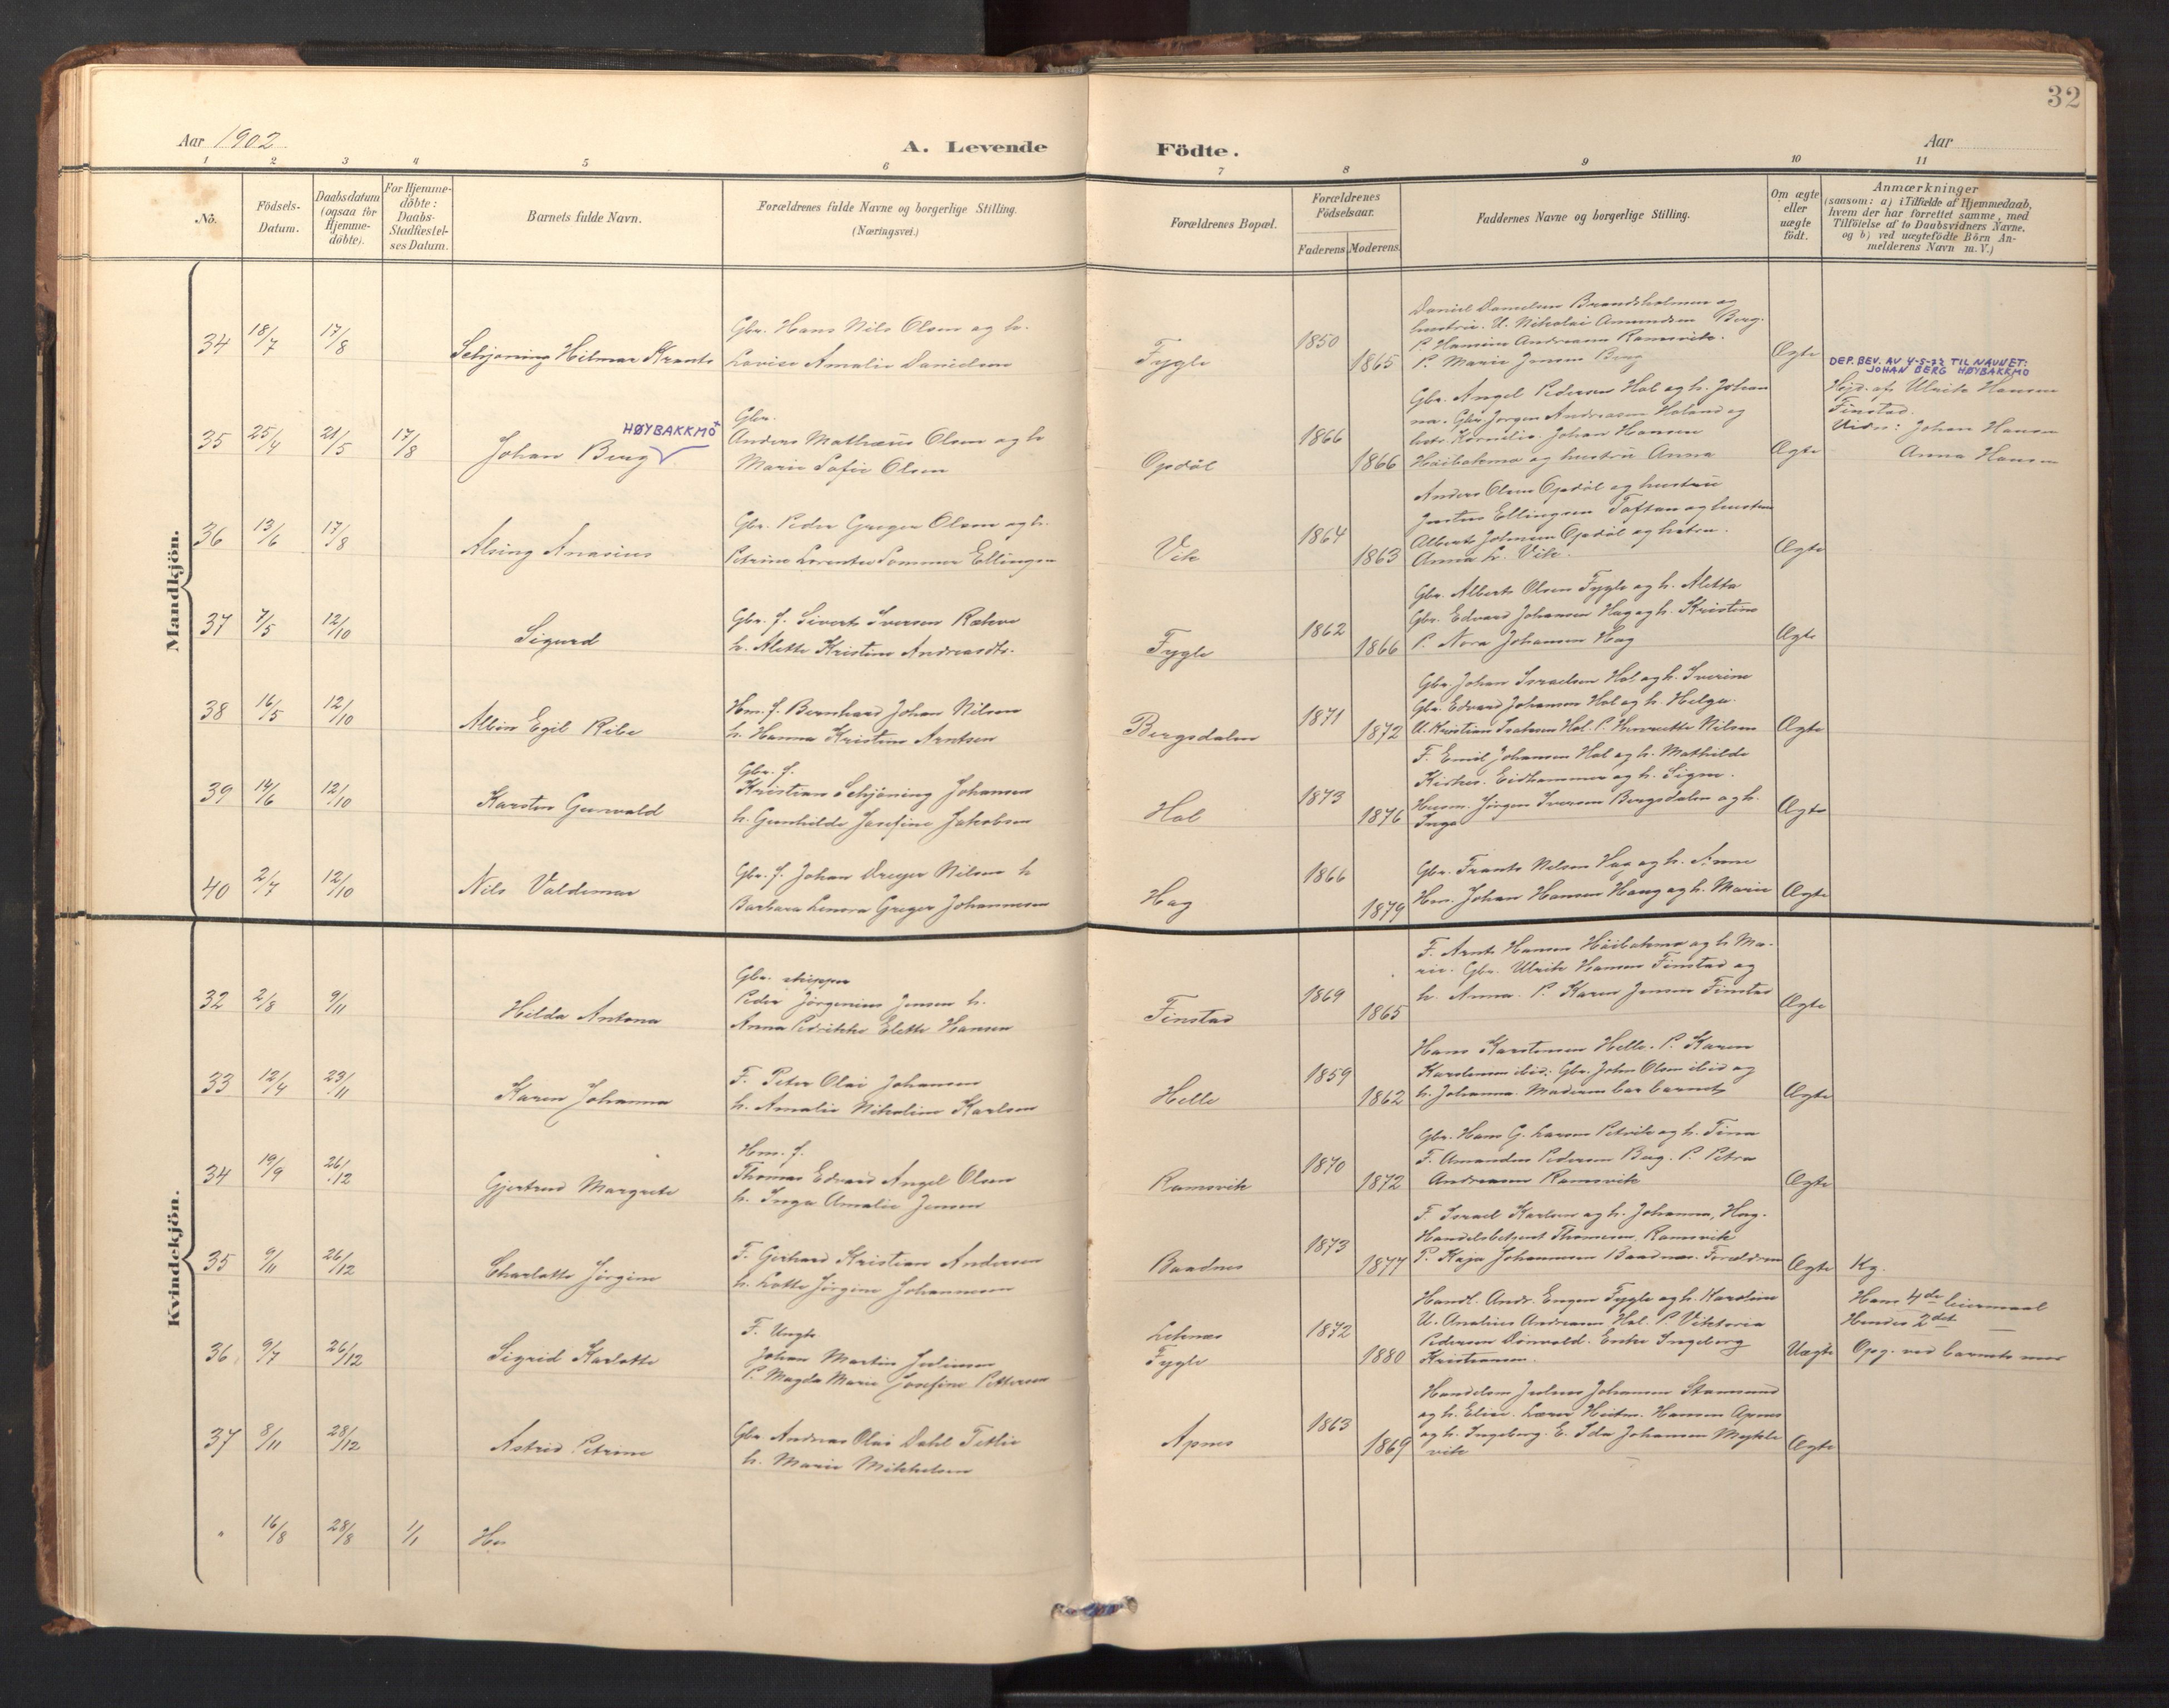 32
Aar 1902
A. Levende Födte.
Aar
1 2 3 4 5 6 7 8 9 10 11
No.
Födsels-Datum.
Daabsdatum (ogsaa for Hjemme-döbte).
For Hjemme-döbte: Daabs-Stadfæstel-ses Datum.
Barnets fulde Navn.
Forældrenes fulde Navne og borgerlige Stilling.
(Næringsvei.)
Forældrenes Bopæl.
Forældrenes Födselsaar.
Faderens Moderens
Faddernes Navne og borgerlige Stilling.
Om ægte eller uægte födt.
Anmærkninger
(saasom: a) i Tilfælde af Hjemmedaab,
hvem der har forrettet samme, med
Tilföielse af to Daabsvidners Navne.
og b) ved uægtefödte Börn An-
melderens Navn m. V.)
Mandkjön.
34 18/7 17/8
Schjøning Hilmar Krants
Gbr. Hans Nils Olsen og h.
Lovise Amalie Danielsen
Fygle
1850
1865
Daniel Danielsen Brandsholmen og
hustrie. U. Nikolai Amundsen Berg.
P. Hansine Andreasen Ramsvik.
P. Marie Jensen Berg
Ægte
35 25/4 21/5 17/8
HØYBAKKMO
Johan Berg
Gbr.
Anders Mathæus Olsen og h
Marie Sofie Olsen
Opdöl
1866
1866
Gbr. Angel Pedersen Hol og h. Johan
na. Gbr Jørgen Andreasen Holand og
hstr Kornelia. Johan Hansen
Höibakmo og hustrü Anna
Ægte
DEP. BEV. AV 4-5-22 TIL NAVNET:
JOHAN BERG HØYBAKKMO
Hjd. af Ulrik Hansen
Finstad.
Vidn: Johan Hansen
Anna Hansen
36 13/6 17/8
Alsing Anasius
Gbr. Peder Greger Olsen og h.
Petrine Lorentse Sommer Ellingsen
Vik
1864
1863
Anders Olsen Opdöl og hustrü
Justus Ellingsen Toftan og hustru
Albert Johnsen Opdöl og hstru.
Anna L. Vik.
Ægte
37 7/5 12/10
Sigurd
Gbr. f. Sivert Iversen Rækve
h. Alette Kristine Andreasdtr.
Fygle
1862
1866
Gbr. Albert Olsen Fygle og h. Aletta
Gbr. Edvard Johansen Hag og h. Kristine
P. Nora Johansen Hag
Ægte
38 16/5 12/10
Albin Egil Ribe
Hm. f. Bernhard Johan Nilsen
h. Hanna Kristine Arntsen
Bergsdalen
1871
1872
Gbr. Johan Israelsen Hol og h. Iverine
Gbr. Edvard Johansen Hol og h. Helga.
U. Kristian Isaksen Hol. P. Henriette Nilsen
Ægte
39 14/6 12/10
Karsten Gunvald
Gbr. f.
Kristian Schjöning Johansen
h. Gunhilda Josefine Jakobsen
Hol
1873
1876
F. Emil Johansen Hol og h. Mathilde
Kirkes. Eidhammer og h. Signe.
Husm. Jörgen Iversen Bergsdalen og h.
Inga
Ægte
40 2/7 12/10
Nils Valdemar
Gbr. f. Johan Dreyer Nilsen h
Barbara Lenora Greger Johannesen
Hag
1866
1879
Gbr. Frants Nilsen Hag og h. Anne
Hm. Johan Hansen Haug og h. Marie
Ægte
Kvindekjön.
32 2/8 9/11
Hilda Antona
Gbr. skipper
Peder Jörgenius Jensen h.
Anna Pedrikke Elette Hansen
Finstad
1869
1865
F. Arnt Hansen Höibakmo og h Ma-
rie. Gbr. Ulrik Hansen Finstad og
h. Anna. P. Karen Jensen Finstad
Ægte
33 12/4 23/11
Karen Johanna
F. Peter Olai Johansen
h. Amalie Nikoline Karlsen
Helle
1859
1862
Hans Karstensen Helle. P. Karen
Karstensen ibid: Gbr. John Olsen ibid og
h. Johanna. Moderen bar barnet
Ægte
34 19/9 26/12
Gjertrud Margrete
Hm. f.
Thomas Edvard Angel Olsen
h. Inga Amalie Jensen
Ramsvik
1870
1872
Gbr. Hans G. Larsen Petvik og h. Tina
F. Amandus Pedersen Berg. P. Petra
Andreasen Ramsvik
Ægte
35 9/11 26/12
Charlotte Jörgine
F. Gerhard Kristian Andersen
h. Lotte Jörgine Johannesen
Baadnes
1873
1877
F. Israel Karlsen og h. Johanna, Hag.
Handelsbetjent Thomesen, Ramsvik
P. Kaja Johannesen Baadnes. Forældrene
Ægte
Kg.
36 9/7 26/12
Sigrid Karlotte
F. Ungk
Johan Martin Juliussen
P. Magda Marie Josefine Pettersen
Leknes
Fygle
1872
1880
Handl. Andr. Engen Fygle og h. Karoline
U. Analius Andreasen Hol. P. Viktoria
Pedersen Dönvold. Enke Ingeborg
Kristiansen.
Uægte
Hans 4de leiermaal
Hendes 2det
Opg. ved barnets mor
37 8/11 28/12
Astrid Petrine
Gbr Andreas Olai Dahl Tetlie
h. Marie Mikkelsen
Apnes
1863
1869
Handelsm Julius Johansen Stamsund
og h. Elise. Lærer Heitm. Hansen Apnes
og h. Ingeborg. E. Ida Johansen Mykle
vik
Ægte
" 16/8 28/8 1/1
He